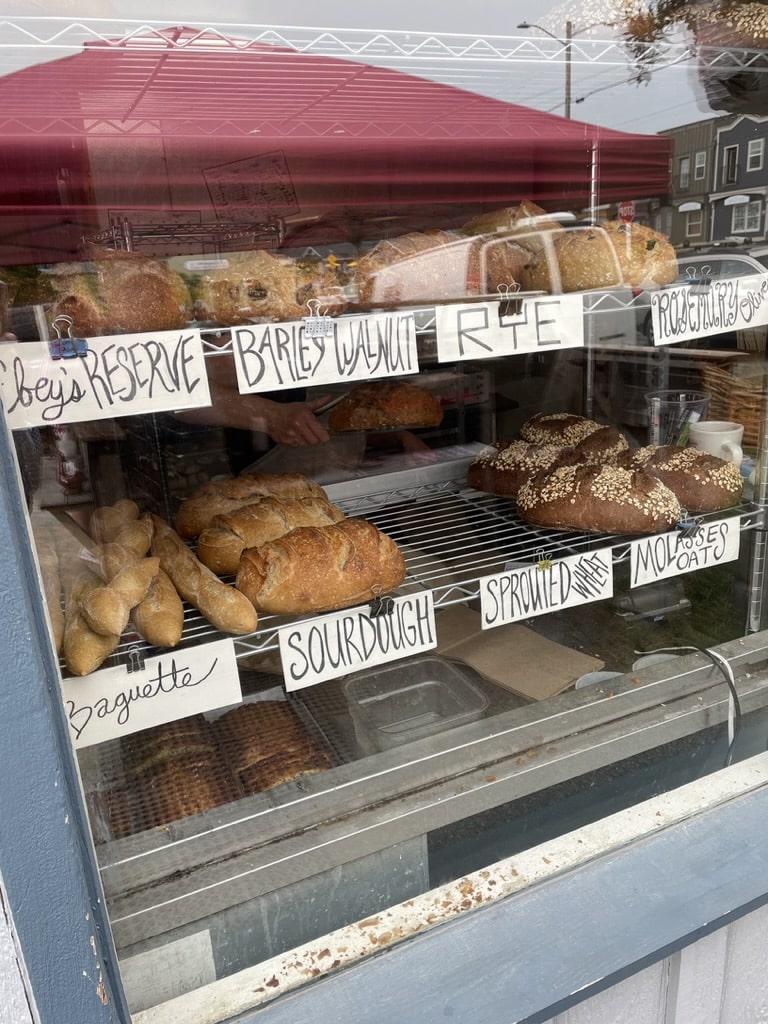 bey's RESERVE
BARLEY WALNUT
RYE
ROSEMARY
Baguette
SOURDOUGH
SPROUTED WHEAT
MOLASSES
OATS